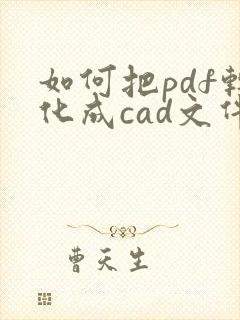 如何把pdf转
化成cad文件
曹天生